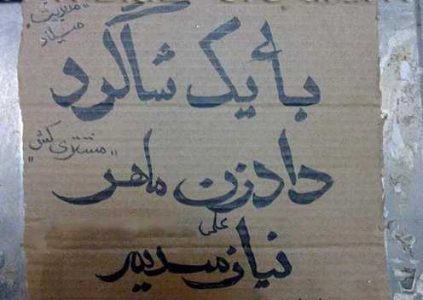 "مدیریت
میلاد"
بائ یک شاگرد
"مشتری کش"
دادزن ماهر
علی
نیازمندیم